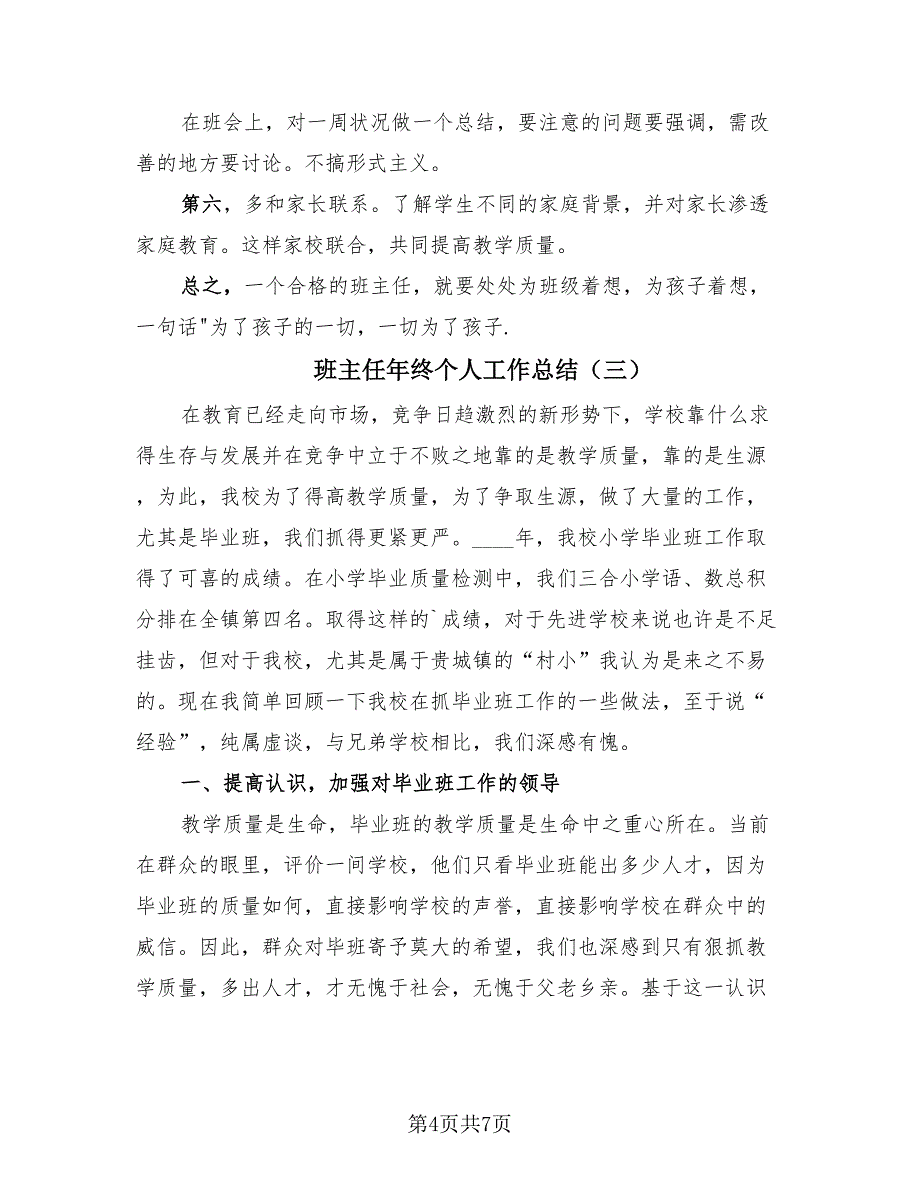 在班会上，对一周状况做一个总结，要注意的问题要强调，需改
善的地方要讨论。不搞形式主义。
第六，多和家长联系。了解学生不同的家庭背景，并对家长渗透
家庭教育。这样家校联合，共同提高教学质量。
总之，一个合格的班主任，就要处处为班级着想，为孩子着想，
一句话"为了孩子的一切，一切为了孩子.
班主任年终个人工作总结（三）
在教育已经走向市场，竞争日趋激烈的新形势下，学校靠什么求
得生存与发展并在竞争中立于不败之地靠的是教学质量，靠的是生源
，为此，我校为了得高教学质量，为了争取生源，做了大量的工作，
尤其是毕业班，我们抓得更紧更严。____年，我校小学毕业班工作取
得了可喜的成绩。在小学毕业质量检测中，我们三合小学语、数总积
分排在全镇第四名。取得这样的`成绩，对于先进学校来说也许是不足
挂齿，但对于我校，尤其是属于贵城镇的“村小”我认为是来之不易
的。现在我简单回顾一下我校在抓毕业班工作的一些做法，至于说“
经验”，纯属虚谈，与兄弟学校相比，我们深感有愧。
一、提高认识，加强对毕业班工作的领导
教学质量是生命，毕业班的教学质量是生命中之重心所在。当前
在群众的眼里，评价一间学校，他们只看毕业班能出多少人才，因为
毕业班的质量如何，直接影响学校的声誉，直接影响学校在群众中的
威信。因此，群众对毕班寄予莫大的希望，我们也深感到只有狠抓教
学质量，多出人才，才无愧于社会，无愧于父老乡亲。基于这一认识
第4页共7页